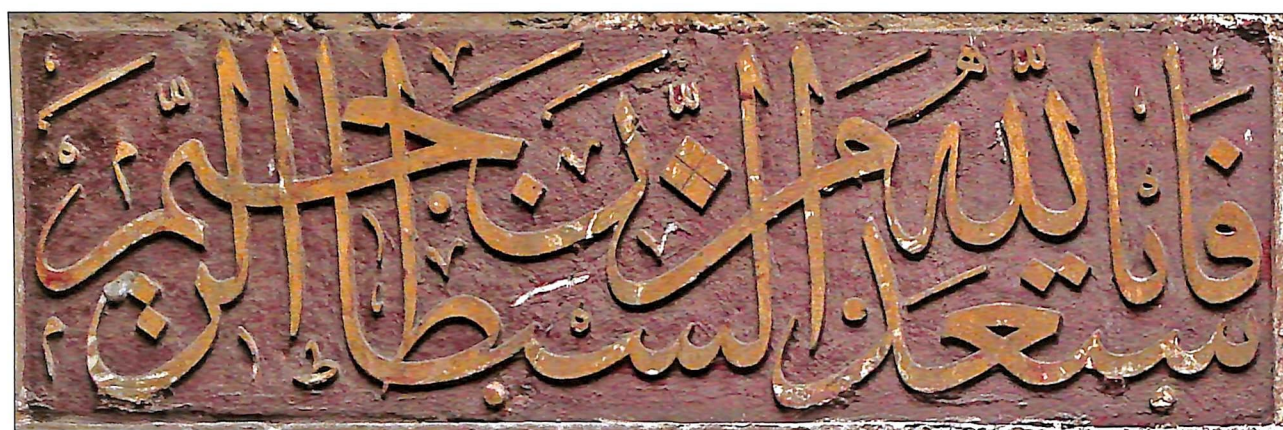 فاستعذ بالله من الشيطان الرجيم